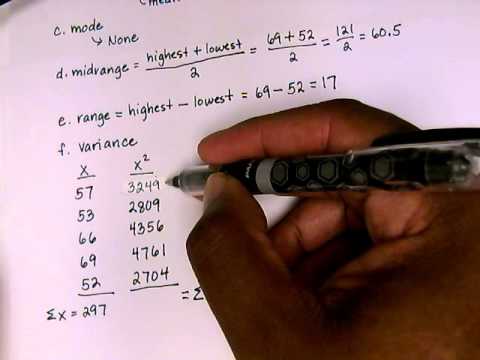 c. mode
↳ None
d. midrange = highest + lowest / 2 = 69 + 52 / 2 = 121 / 2 = 60.5
e. range = highest - lowest = 69 - 52 = 17
f. variance
x x²
57 3249
53 2809
66 4356
69 4761
52 2704
Σx = 297 = Σ